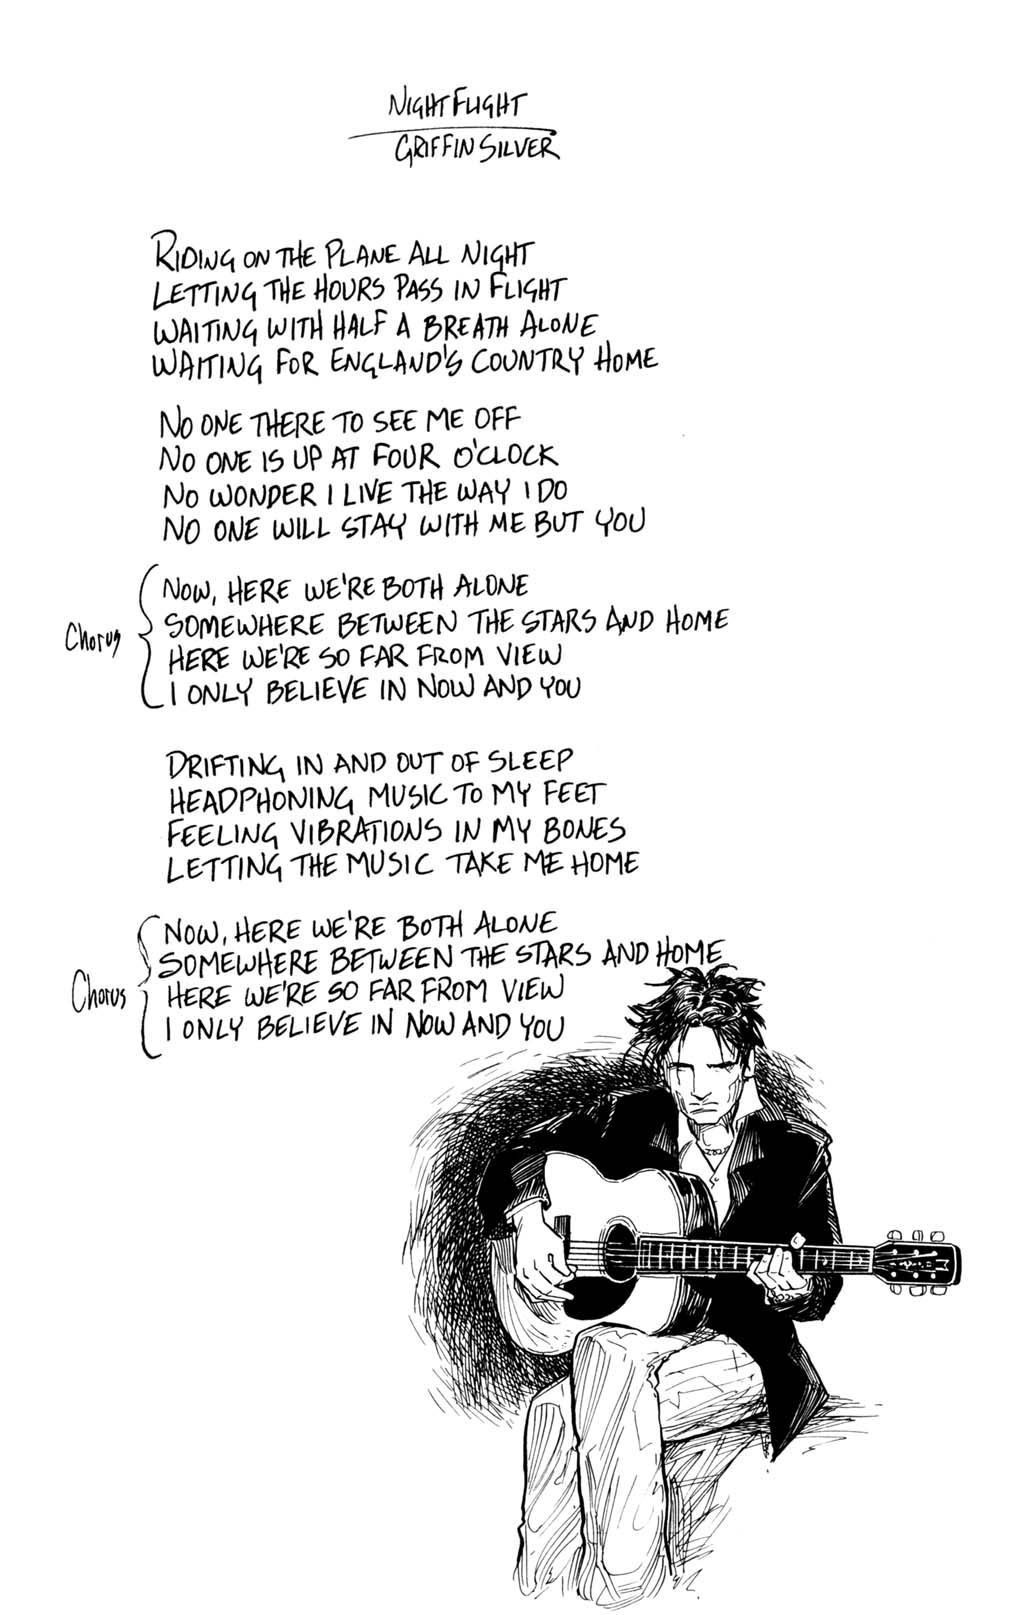 NIGHT FLIGHT
GRIFFIN SILVER
RIDING ON THE PLANE ALL NIGHT
LETTING THE HOURS PASS IN FLIGHT
WAITING WITH HALF A BREATH ALONE
WAITING FOR ENGLAND'S COUNTRY HOME
NO ONE THERE TO SEE ME OFF
NO ONE IS UP AT FOUR O'CLOCK
NO WONDER I LIVE THE WAY I DO
NO ONE WILL STAY WITH ME BUT YOU
Chorus
NOW, HERE WE'RE BOTH ALONE
SOMEWHERE BETWEEN THE STARS AND HOME
HERE WE'RE SO FAR FROM VIEW
I ONLY BELIEVE IN NOW AND YOU
DRIFTING IN AND OUT OF SLEEP
HEADPHONING MUSIC TO MY FEET
FEELING VIBRATIONS IN MY BONES
LETTING THE MUSIC TAKE ME HOME
Chorus
NOW, HERE WE'RE BOTH ALONE
SOMEWHERE BETWEEN THE STARS AND HOME
HERE WE'RE SO FAR FROM VIEW
I ONLY BELIEVE IN NOW AND YOU